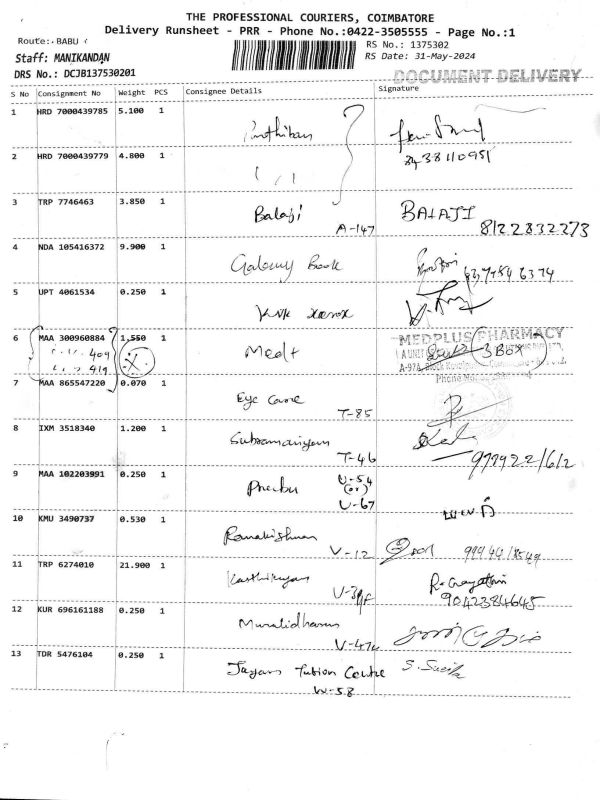 THE PROFESSIONAL COURIERS, COIMBATORE
Delivery Runsheet - PRR - Phone No.:0422-3505555 - Page No.:1
Route:- BABU
RS No.: 1375302
Staff: MANIKANDAN
RS Date: 31-May-2024
DRS No.: DCJB137530201
DOCUMENT DELIVERY
S No Consignment No Weight PCS Consignee Details Signature
1 HRD 7000439785 5.100 1 Parthiban
8438110951
2 HRD 7000439779 4.800 1
3 TRP 7746463 3.850 1 Balaji BALAJI
A-147 8122832273
4 NDA 105416372 9.900 1 Galaxy Book
5 UPT 4061534 0.250 1 KVK xerox
6 MAA 300960884 1.550 1 Med+ MEDPLUS PHARMACY
409 3 BOX
419
Phone No.
7 MAA 865547220 0.070 1 Eye Care
T-85
8 IXM 3518340 1.200 1 Subramaniyam
T-46
9 MAA 102203991 0.250 1 Prabu U-54
(or)
U-67
10 KMU 3490737 0.530 1 Ramakrishnan
V-12
11 TRP 6274010 21.900 1 Karthikeyan R. Gayathri
9042384645
12 KUR 696161188 0.250 1 Muralidharan
V-47A
13 TDR 5476104 0.250 1 Jayam Tution Centre
W-58